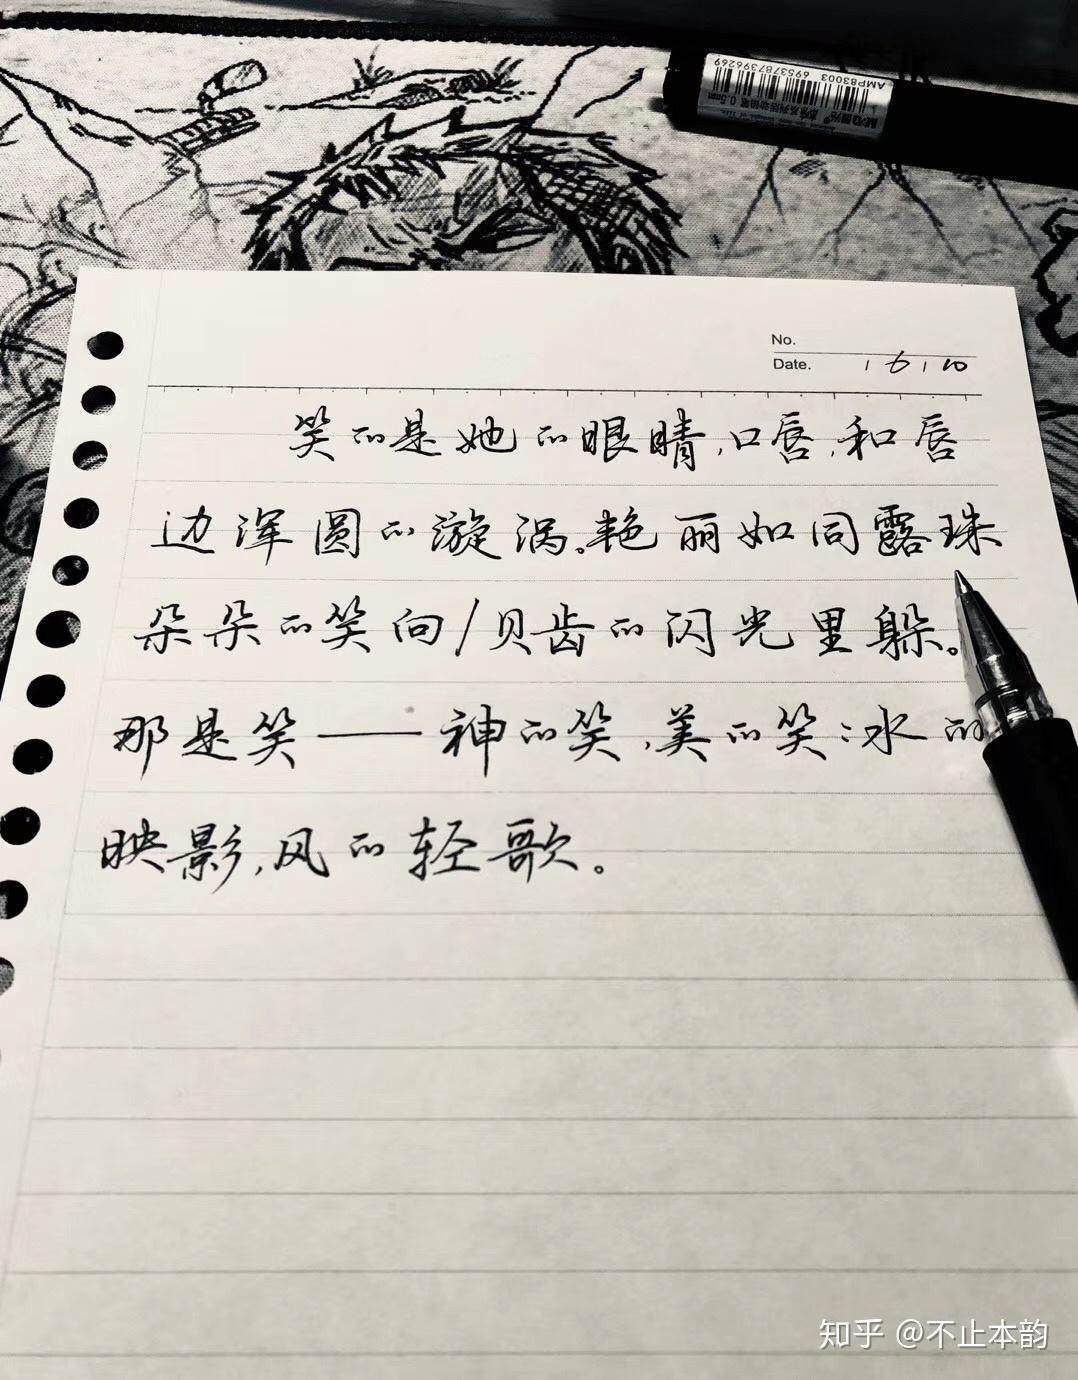 AMP83003 6953787396269
M&G晨光
0.5mm
No.
Date. 1 6 1 10
笑的是她的眼睛,口唇,和唇
边浑圆的漩涡。艳丽如同露珠
朵朵的笑向/贝齿的闪光里躲。
那是笑——神的笑,美的笑:水的
映影,风的轻歌。
知乎 @不止本韵